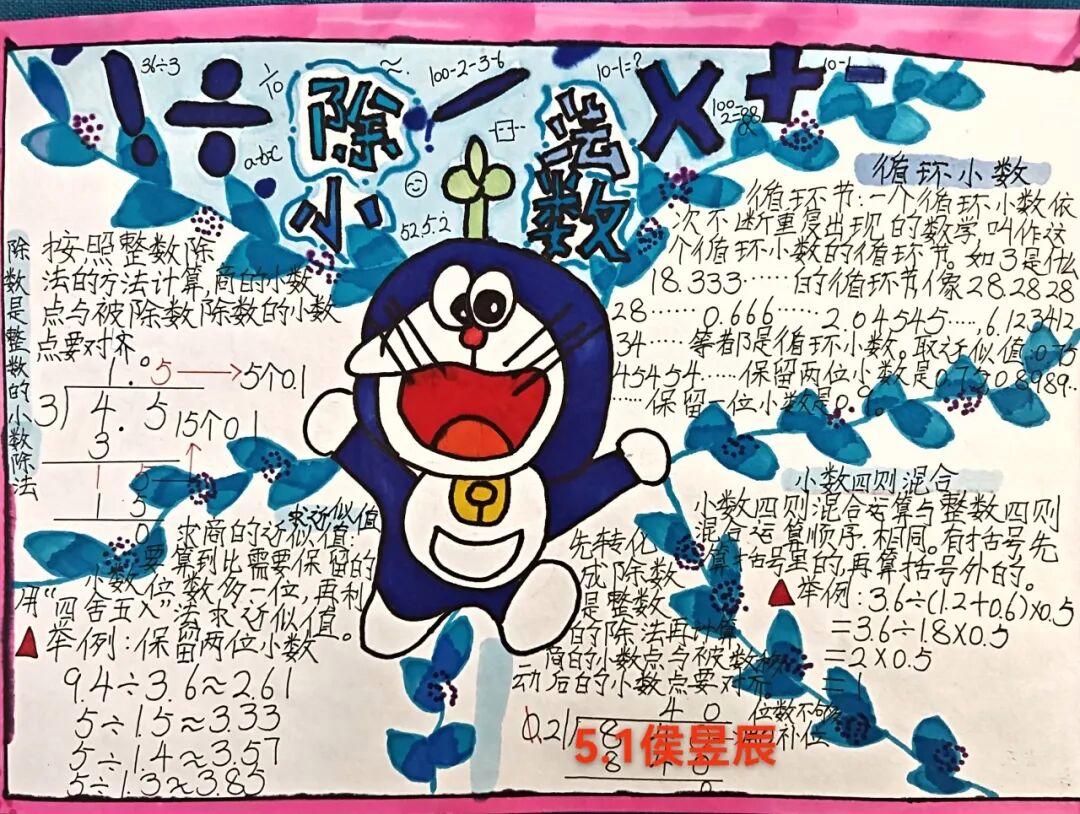 36÷3
100-2-3-6
10-1=?
10-1
! ÷ 除 - 法 × + -
abc
小 数
52 5.2
循环小数
循环节:一个循环小数依
次不断重复出现的数学叫作这
个循环小数的循环节,如3是什么
18.333……的循环节像28.2828
28…… 0.666…… 2.04545……,6.123412
34……等都是循环小数。取近似值:0.75
45454……保留两位小数是0.75 0.8989..
……保留一位小数是0.9。
除数是整数的小数除法
按照整数除
法的方法计算,商的小数
点与被除数除数的小数
点要对齐。
1.5→5个0.1
3)4.5
3 15个0.1
1 5
1 5
0
求近似值
求商的近似值:
要算到比需要保留的
小数位数多一位,再利
用“四舍五入”法求近似值。
▲举例:保留两位小数
9.4÷3.6≈2.61
5÷1.5≈3.33
5÷1.4≈3.57
5÷1.3≈3.85
先转化
成除数
是整数
的除法再计算
商的小数点与被数移
动后的小数点要对齐。
4 0
0.21)8
8 4
0
位数不够
补位
小数四则混合
小数四则混合运算与整数四则
混合运算顺序相同。有括号先
算括号里的,再算括号外的。
▲举例:3.6÷(1.2+0.6)×0.5
=3.6÷1.8×0.5
=2×0.5
=1
5.1侯昱辰